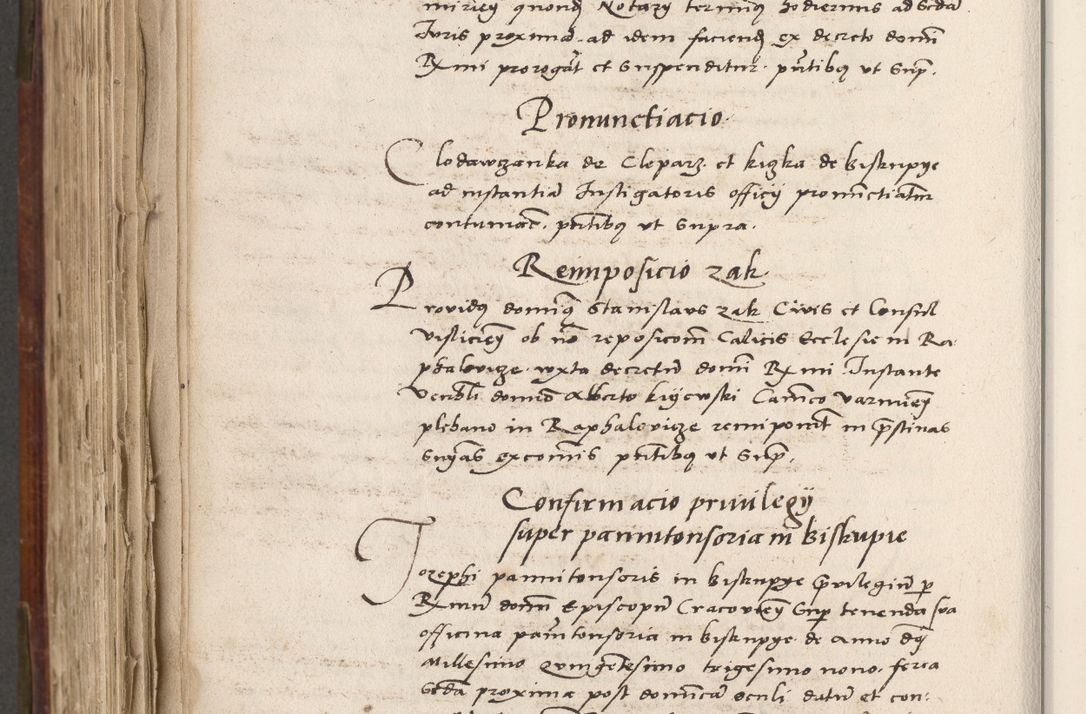 miriey quond Notary terminus hodiernus ad Scdam
Juris proximam ad idem faciend ex decreto domini
Rmi prorogat et Suspenditur pntibus ut Sup.
Pronunctiacio
Clodawczanka de Cleparz et kiczka de biskupye
ad instantiam Instigatoris officy pronunctiatur
contumaces. pntibus ut Supra.
Reimposicio zak
Providus dominus Stanislaus zak Civis et Consul
visliciey ob non reposicom Calicis Ecclesie in Ra
phalovicze iuxta decretum domini Rmi Instante
Venbli domino Alberto kiyewski Canco varmiey
plebano in Raphalovicze reimponit in pristinas
snyas excomis pntibus ut Sup.
Confirmacio privilegy
super pannitonsoria in biskupie
Jozephi pannitonsoris in biskupye privilegium per
Rmum dominum Episcopum Cracovien Super tenenda sua
officina pannitonsoria in biskupye de Anno dny
Millesimo Quingentesimo trigesimo nono. feria
Scda proxima post dominicam oculi datum et con: